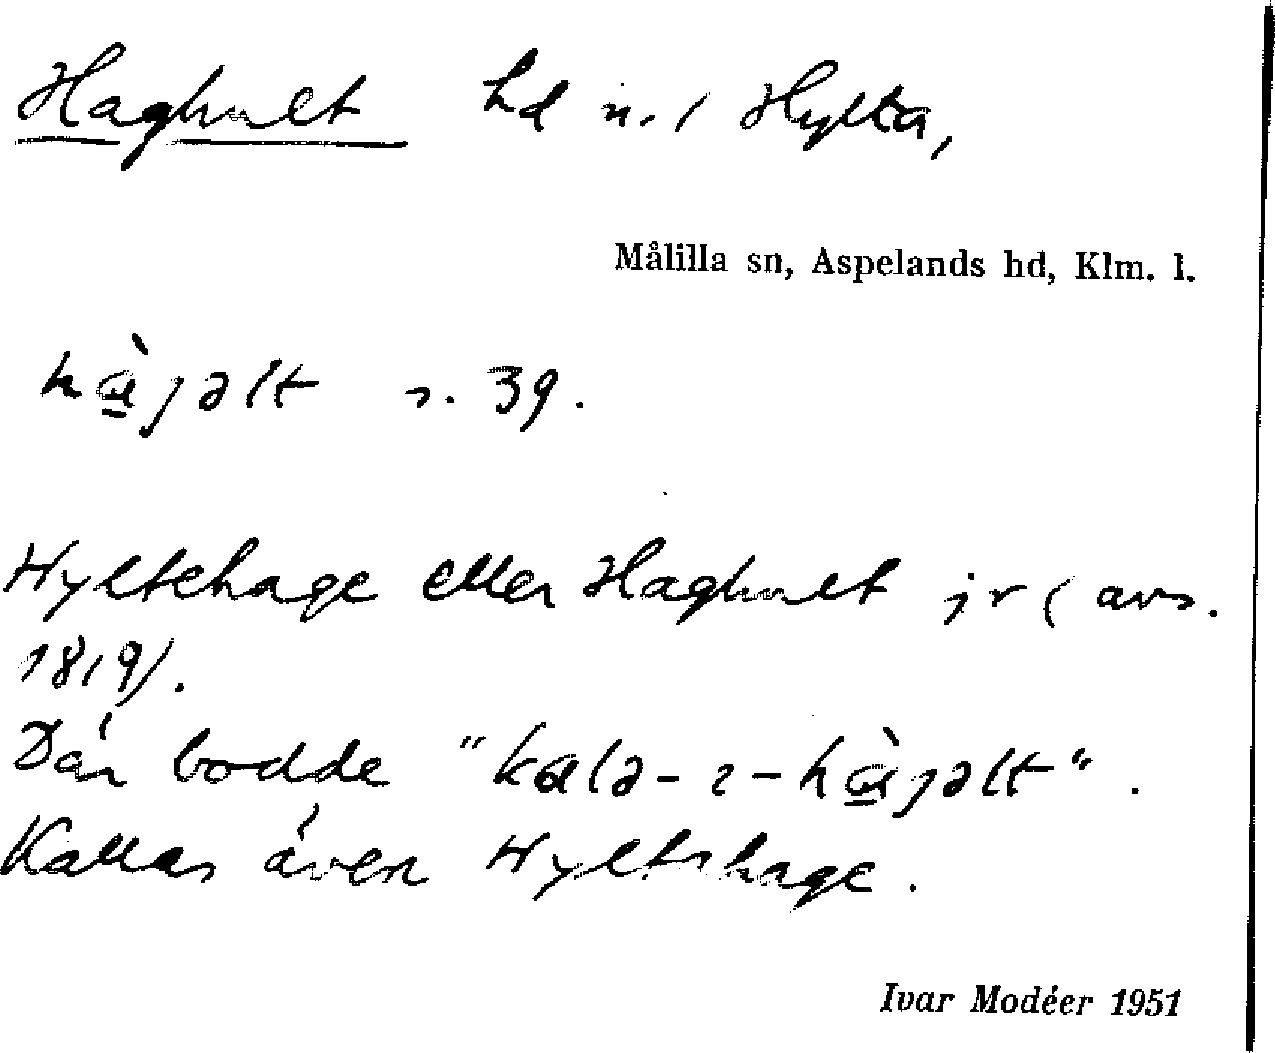 Haghult hd u. / Hylta,
Målilla sn, Aspelands hd, Klm. l.
hɑ̱̀jəlt s. 39.
Hyltehage eller Haghult jr (avs.
1819/.
Där bodde "kɑlə-ɪ-hɑ̱̀jəlt".
Kallas även Hyltshage.
Ivar Modéer 1951